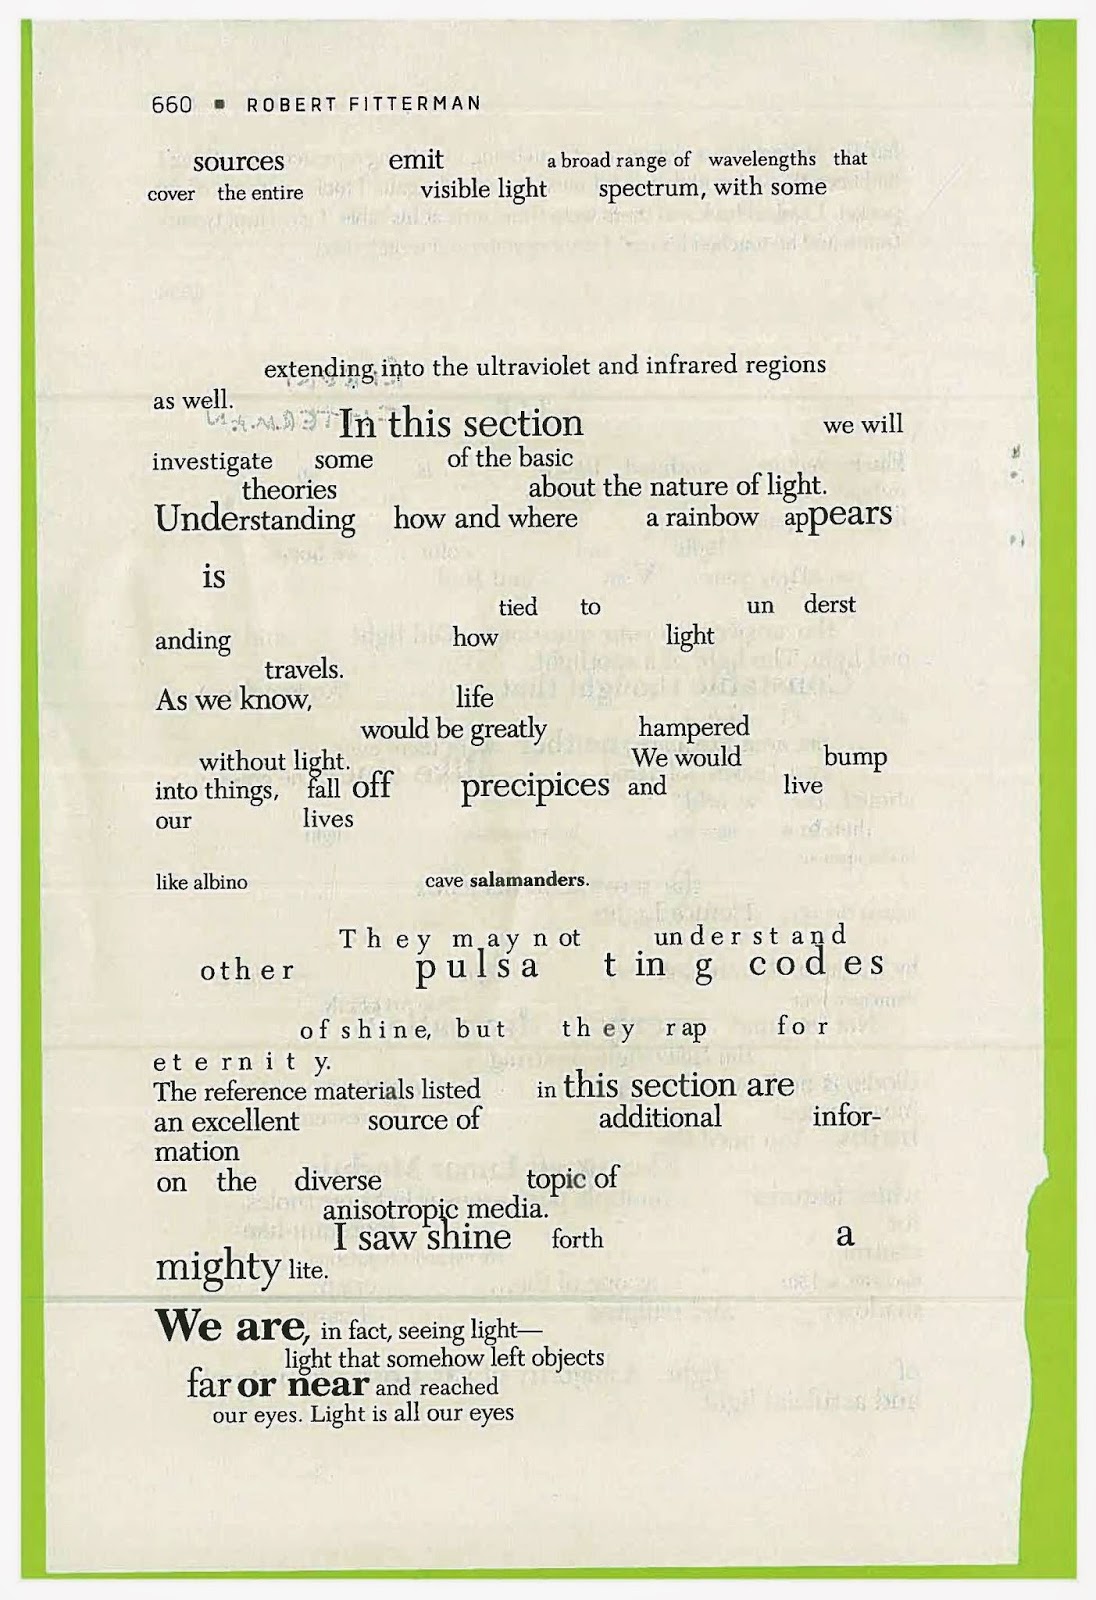 660 ■ ROBERT FITTERMAN
sources emit a broad range of wavelengths that
cover the entire visible light spectrum, with some
extending into the ultraviolet and infrared regions
as well.
In this section we will
investigate some of the basic
theories about the nature of light.
Understanding how and where a rainbow appears
is
tied to un derst
anding how light
travels.
As we know, life
would be greatly hampered
without light. We would bump
into things, fall off precipices and live
our lives
like albino cave salamanders.
They may not understand
other pulsa tin g codes
of shine, but they rap for
eternity.
The reference materials listed in this section are
an excellent source of additional infor-
mation
on the diverse topic of
anisotropic media.
I saw shine forth a
mighty lite.
We are, in fact, seeing light—
light that somehow left objects
far or near and reached
our eyes. Light is all our eyes